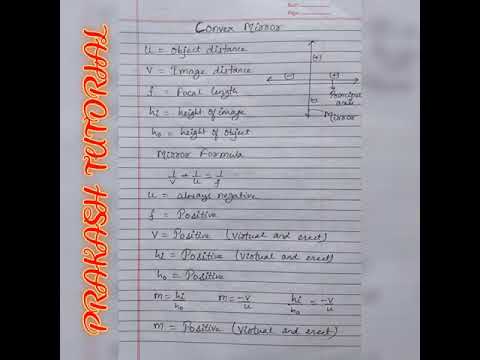 PRAKASH TUTORIAL
Convex Mirror
u = Object distance
v = Image distance
f = Focal length
hi = height of image
ho = height of object
(+)
(-)
(+)
(-)
Principal
axis
Mirror
Mirror Formula
1/v + 1/u = 1/f
u = always negative
f = Positive
v = Positive (virtual and erect)
hi = Positive (virtual and erect)
ho = Positive
m = hi/ho m = -v/u hi/ho = -v/u
m = Positive (virtual and erect)